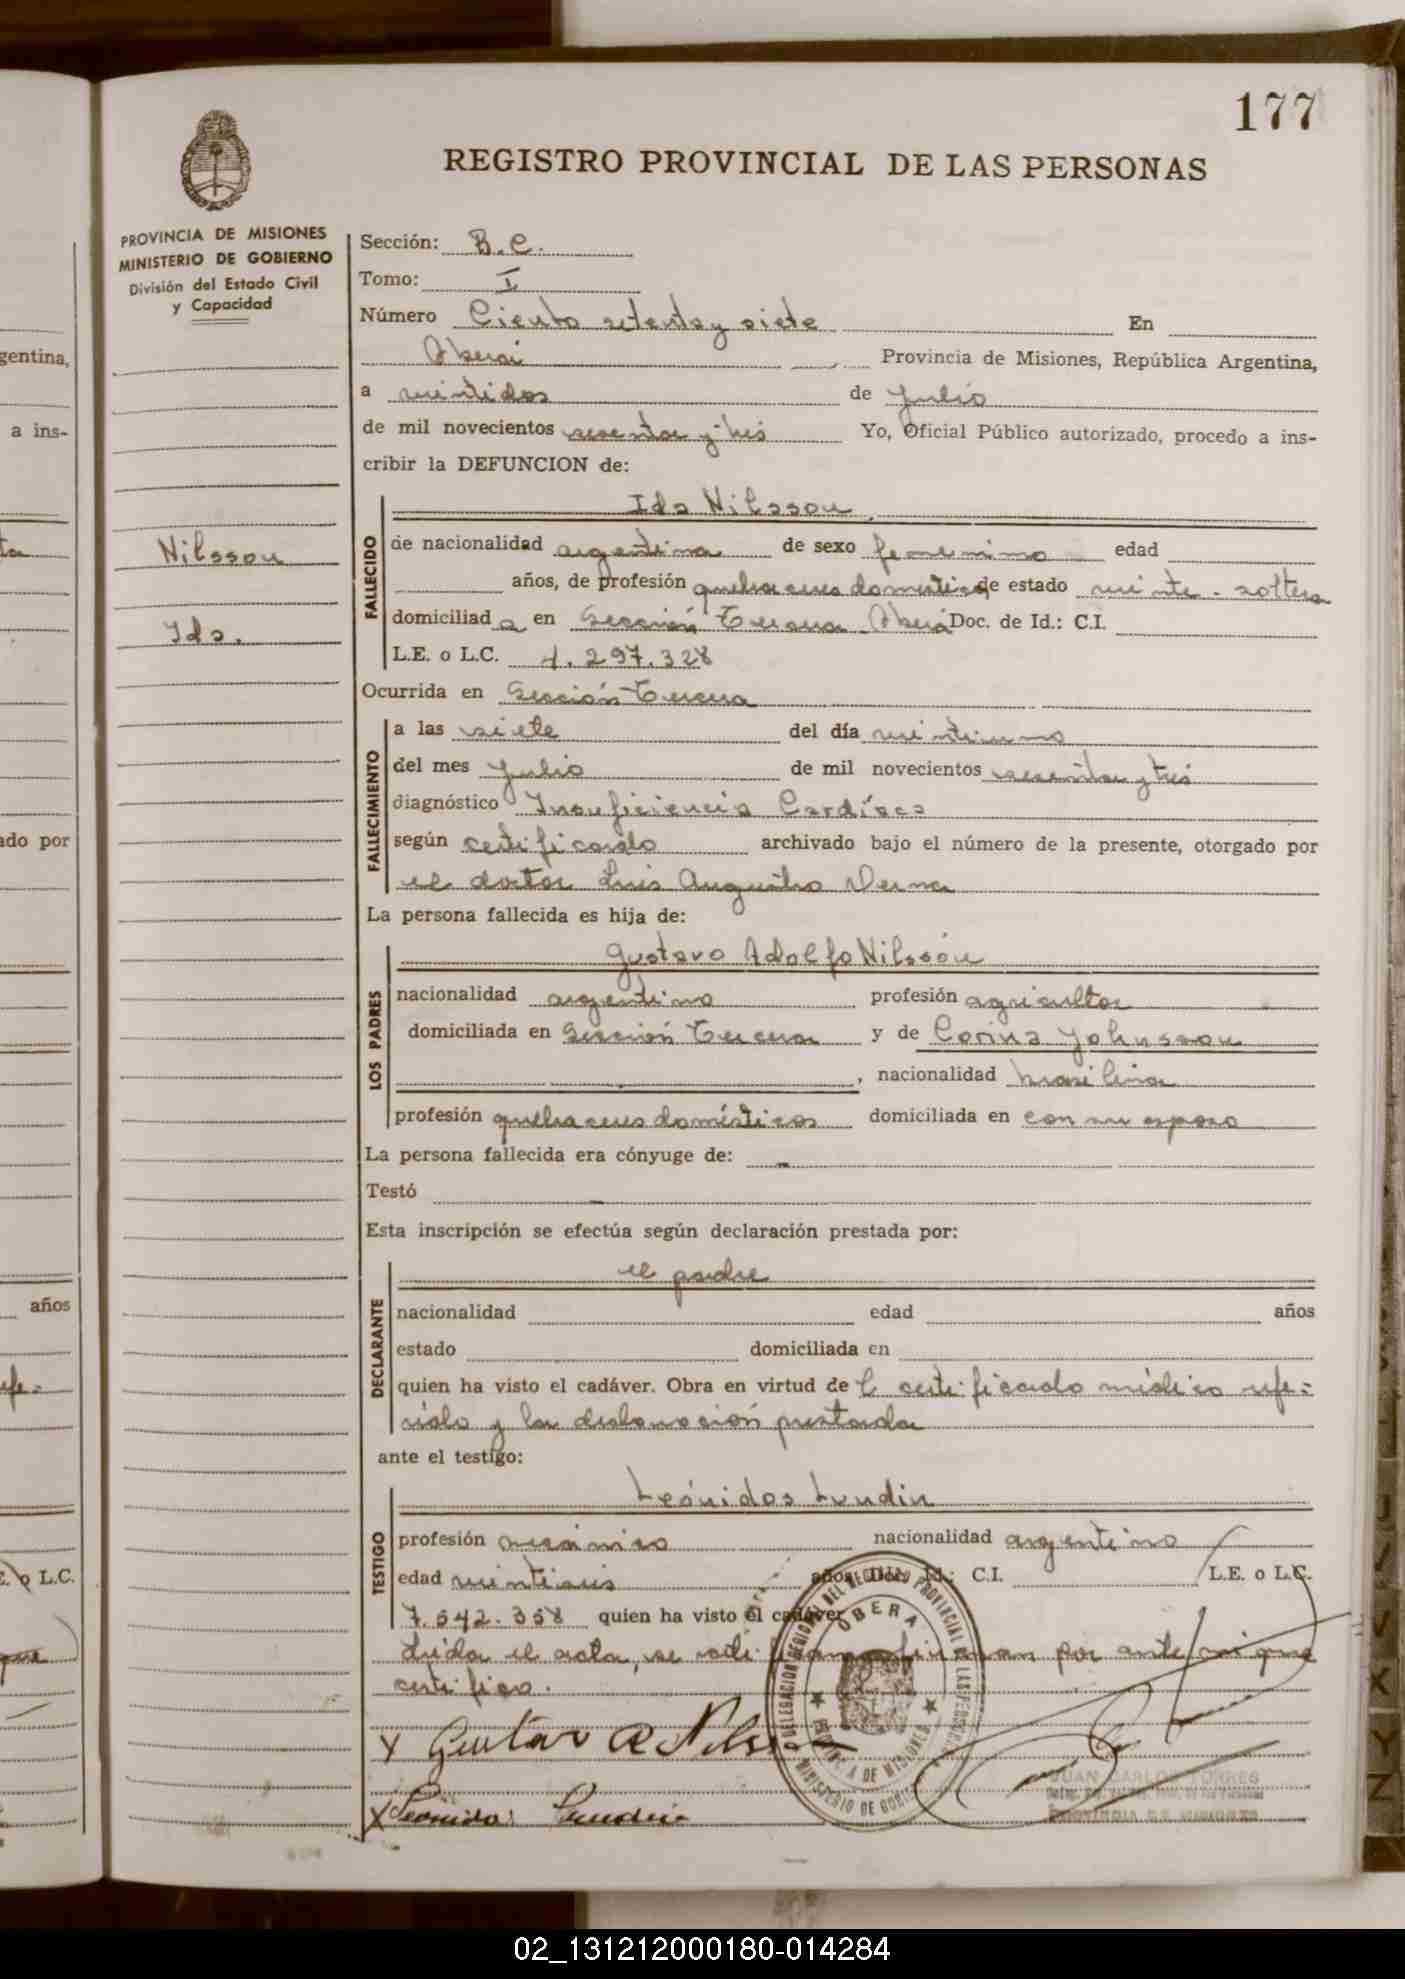 177
REGISTRO PROVINCIAL DE LAS PERSONAS
PROVINCIA DE MISIONES
MINISTERIO DE GOBIERNO
División del Estado Civil
y Capacidad
Nilsson
Ida.
Sección: B.C.
Tomo: I
Número Ciento setenta y siete En
Oberá Provincia de Misiones, República Argentina,
a veintidos de Julio
de mil novecientos sesenta y tres Yo, Oficial Público autorizado, procedo a ins-
cribir la DEFUNCION de:
Ida Nilsson
FALLECIDO
de nacionalidad argentina de sexo femenino edad
años, de profesión quehaceres domésticos de estado veinte - soltera
domiciliad a en Sección Tercera Oberá Doc. de Id.: C.I.
L.E. o L.C. 4.297.328
Ocurrida en Sección Tercera
FALLECIMIENTO
a las siete del día veintiuno
del mes Julio de mil novecientos sesenta y tres
diagnóstico Insuficiencia Cardíaca
según certificado archivado bajo el número de la presente, otorgado por
el doctor Luis Augusto Verna
La persona fallecida es hija de:
LOS PADRES
Gustavo Adolfo Nilsson
nacionalidad argentino profesión agricultor
domiciliada en Sección Tercera y de Corina Johnsson
, nacionalidad brasileña
profesión quehaceres domésticos domiciliada en con su esposo
La persona fallecida era cónyuge de: -
Testó -
Esta inscripción se efectúa según declaración prestada por:
DECLARANTE
el padre
nacionalidad edad años
estado domiciliada en
quien ha visto el cadáver. Obra en virtud de l certificado médico refe-
rido y la declaración prestada
ante el testigo:
TESTIGO
Leónidas Lundin
profesión mecánico nacionalidad argentino
edad veintiseis años Doc. Id.: C.I. L.E. o L.C.
7.542.358 quien ha visto el cadáver
Leída el acta, se ratifican y firman por ante mi que
certifico.
X Gustav A Nilsson
X Leonidas Lundin
DELEGACION REGIONAL DEL REGISTRO PROVINCIAL DE LAS PERSONAS
OBERA
PROVINCIA DE MISIONES
MINISTERIO DE GOBIERNO
JUAN CARLOS TORRES
gentina,
a ins-
ado por
años
refe-
E. o L.C.
J
V
X
Y
Z
02_131212000180-014284